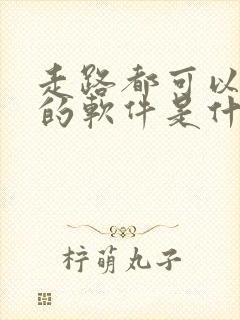 走路都可以
的軟件是什
柠萌丸子